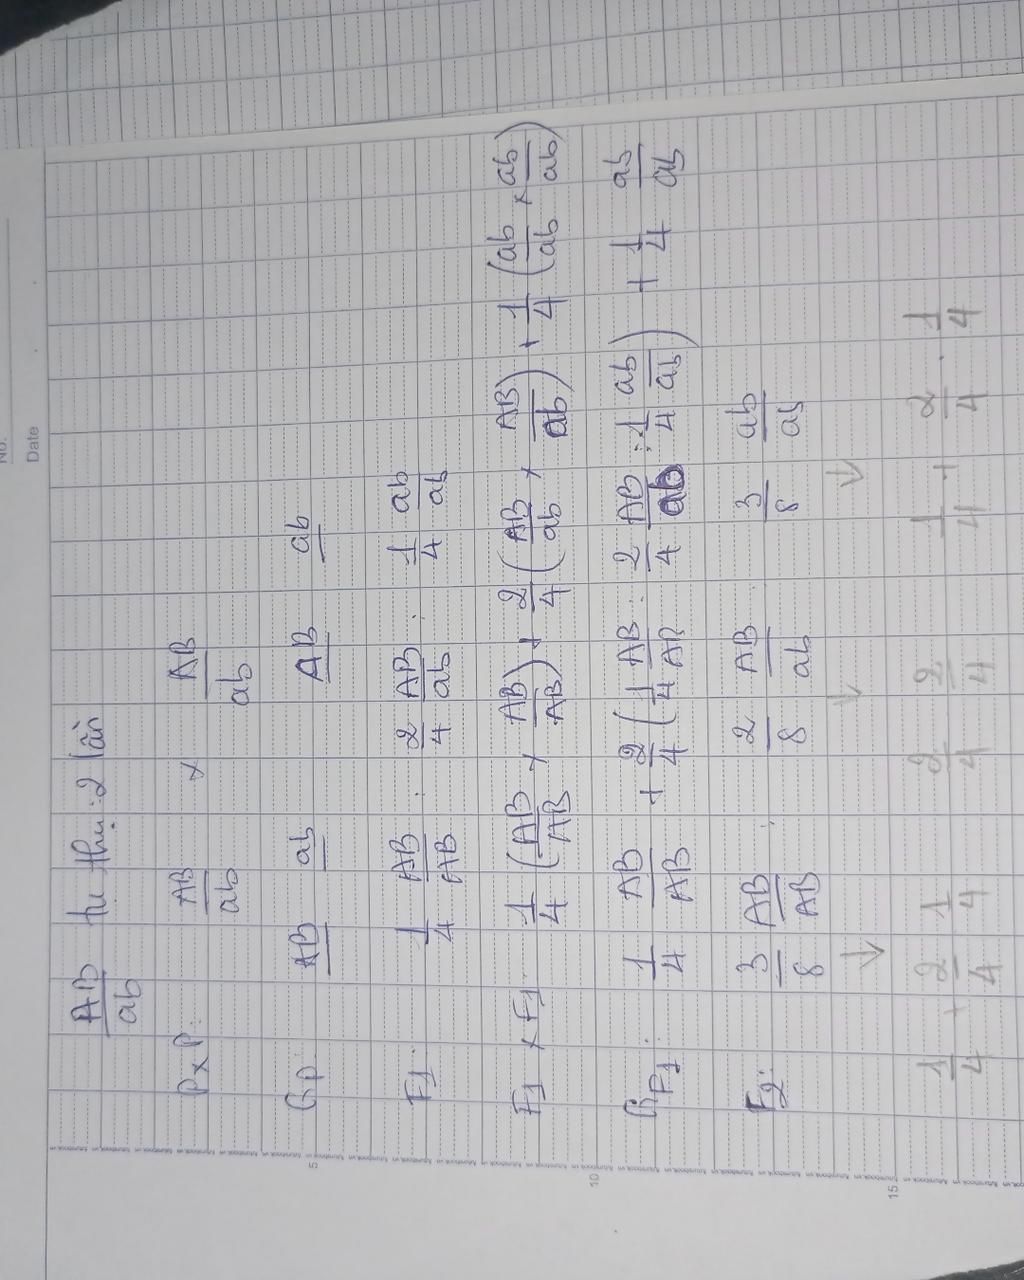 No.
Date
AB/ab tự thụ: 2 lần
P x P: AB/ab x AB/ab
Gp: AB ab AB ab
F1: 1/4 AB/AB : 2/4 AB/ab : 1/4 ab/ab
F1 x F1: 1/4 (AB/AB x AB/AB) + 2/4 (AB/ab x AB/ab) + 1/4 (ab/ab x ab/ab)
GF1: 1/4 AB/AB + 2/4 (1/4 AB/AB : 2/4 AB/ab : 1/4 ab/ab) + 1/4 ab/ab
F2: 3/8 AB/AB : 2/8 AB/ab : 3/8 ab/ab
↓ ↓ ↓
1/4 + 2/4 . 1/4 2/4 . 2/4 1/4 + 2/4 . 1/4
5
10
15